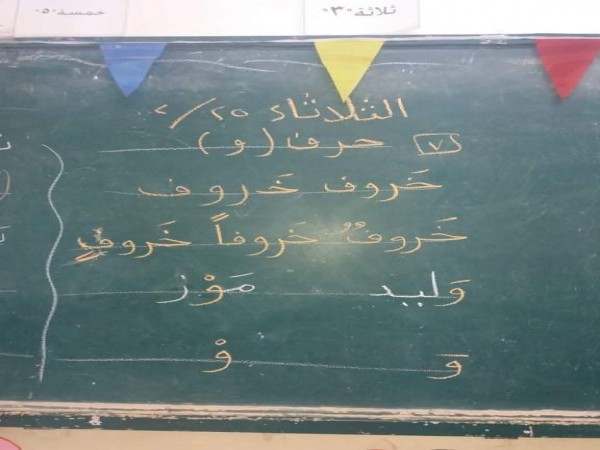 ثلاثة ٠٣٠ خمسة ٠٥٠
الثلاثاء ٢٥/٢
٧ حرف (و)
خَروف خَروف
خَروفٌ خَروفاً خَروفٍ
وَليد مَوْز
وَ وْ